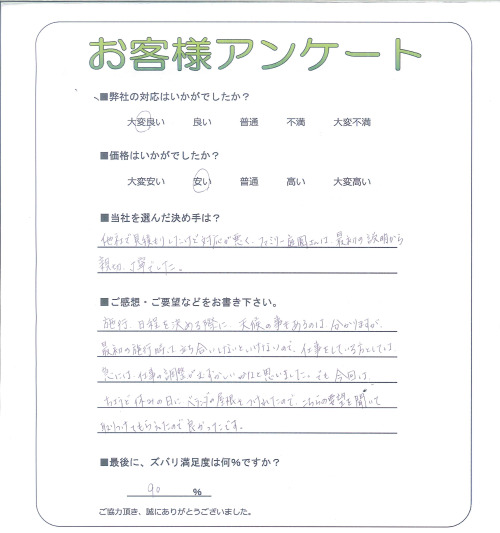 お客様アンケート
■弊社の対応はいかがでしたか？
大変良い 良い 普通 不満 大変不満
■価格はいかがでしたか？
大変安い 安い 普通 高い 大変高い
■当社を選んだ決め手は？
他社で見積もりしたけど対応が悪く、ファミリー庭園さんは、最初の説明から
親切、丁寧でした。
■ご感想・ご要望などをお書き下さい。
施行、日程を決める際に、天候の事もあるのは分かりますが、
最初の施行時に立ち合いしないといけないので、仕事をしている方としては、
急には、仕事の調整がむずかしいかなと思いました。でも今回は、
ちょうど休みの日に の屋根をつけれたので、こちらの要望を聞いて
もらえたので良かったです。
■最後に、ズバリ満足度は何%ですか？
90 %
ご協力頂き、誠にありがとうございました。